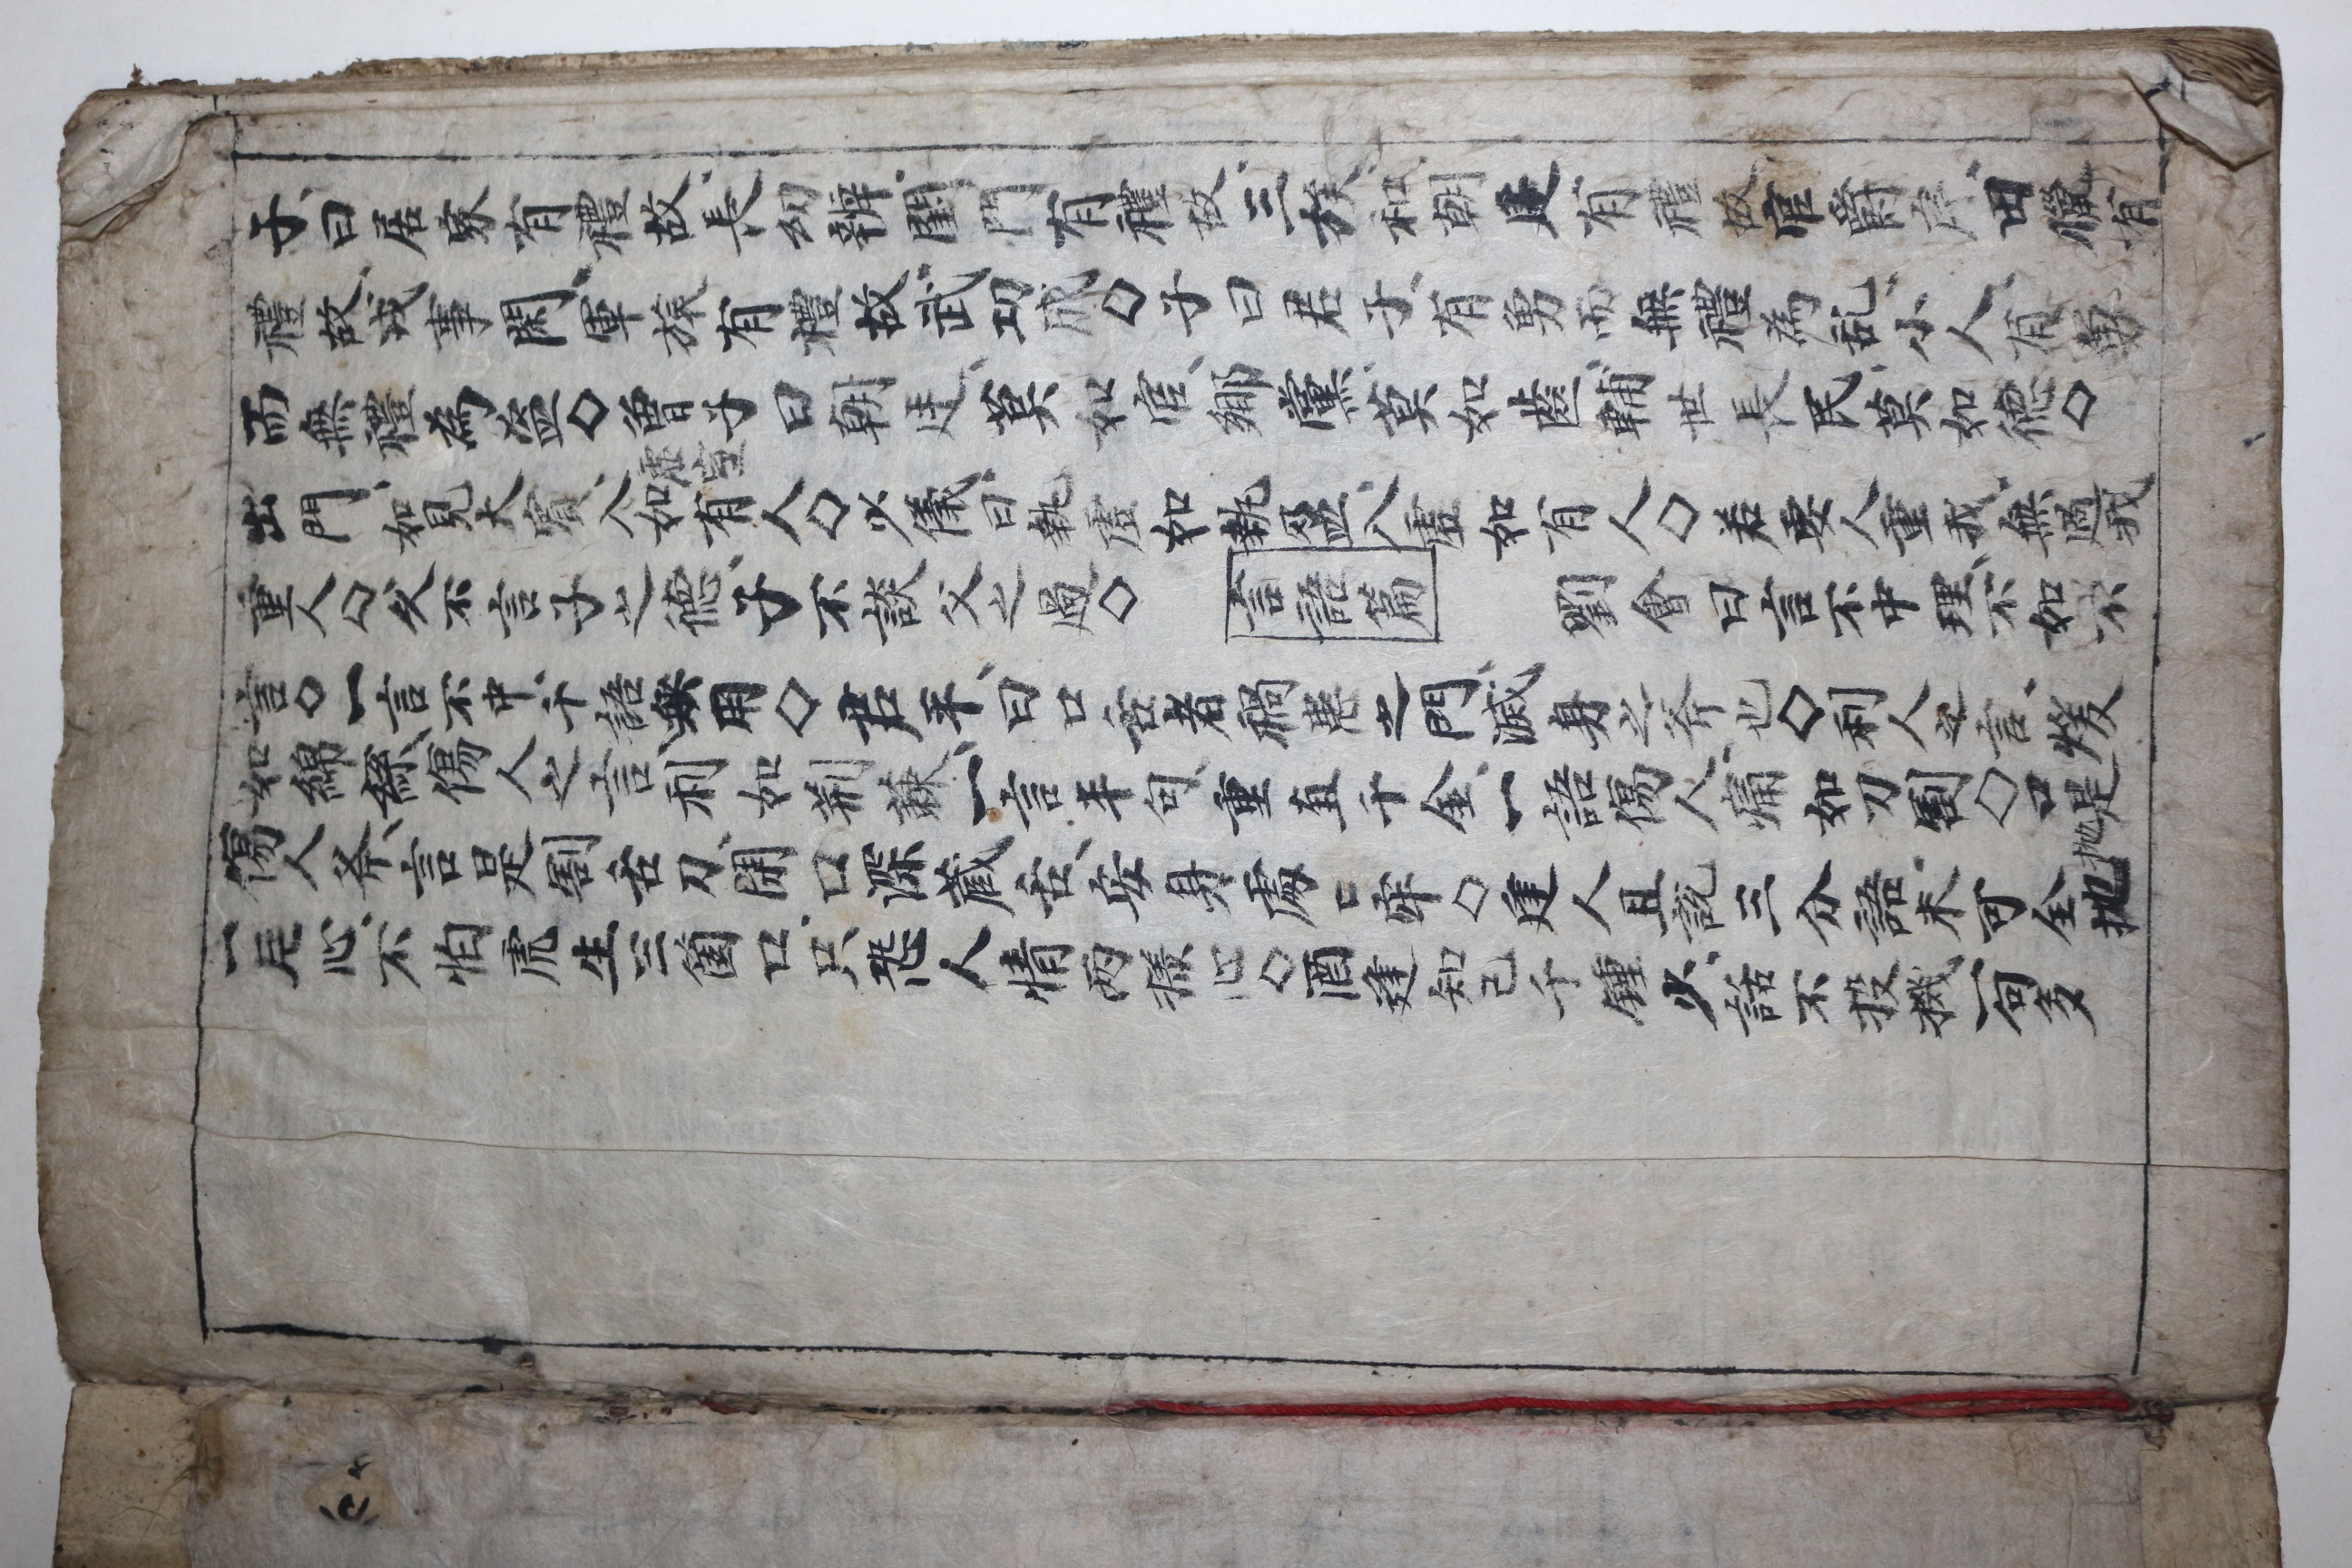 子曰居家有禮故長幼辨閨門有禮故三族和朝廷有禮故官爵序田獵有
禮故戎事閑軍旅有禮故武功成○子曰君子有勇而無禮爲乱小人有勇
而無禮爲盜○曾子曰朝廷莫如官鄕黨莫如齒輔世長民莫如德○
出門如見大賓入如有人○少儀曰執虛如執盈入虛如有人○若要人重我無過我
虛室
重人○父不言子之德子不談父之過○ 言語篇 劉會曰言不中理不如不
言○一言不中千語無用○君平曰口舌者禍患之門滅身之斧也○利人之言煖
如綿絲傷人之言利如荊蕀一言半句重値千金一語傷人痛如刀割○口是
傷人斧言是割舌刀閉口深藏舌安身處〻牢○逢人且說三分語未可全抛
抛
一片心不怕虎生三箇口只恐人情兩㨾心○酒逢知己千鍾少話不投機一句多